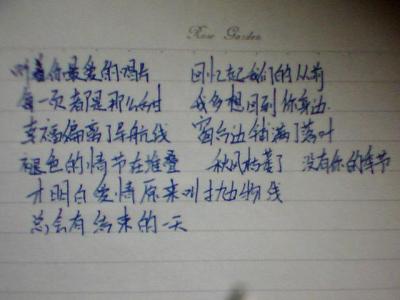 Rose Garden
听着你最爱的唱片 回忆起我们的从前
每一页都是那么甜 我多想回到你身边
幸福偏离了导航线 窗台边铺满了落叶
褪色的情节在堆叠 秋风枯萎了 没有你的季节
才明白爱情原来叫抛物线
总会有结束的一天